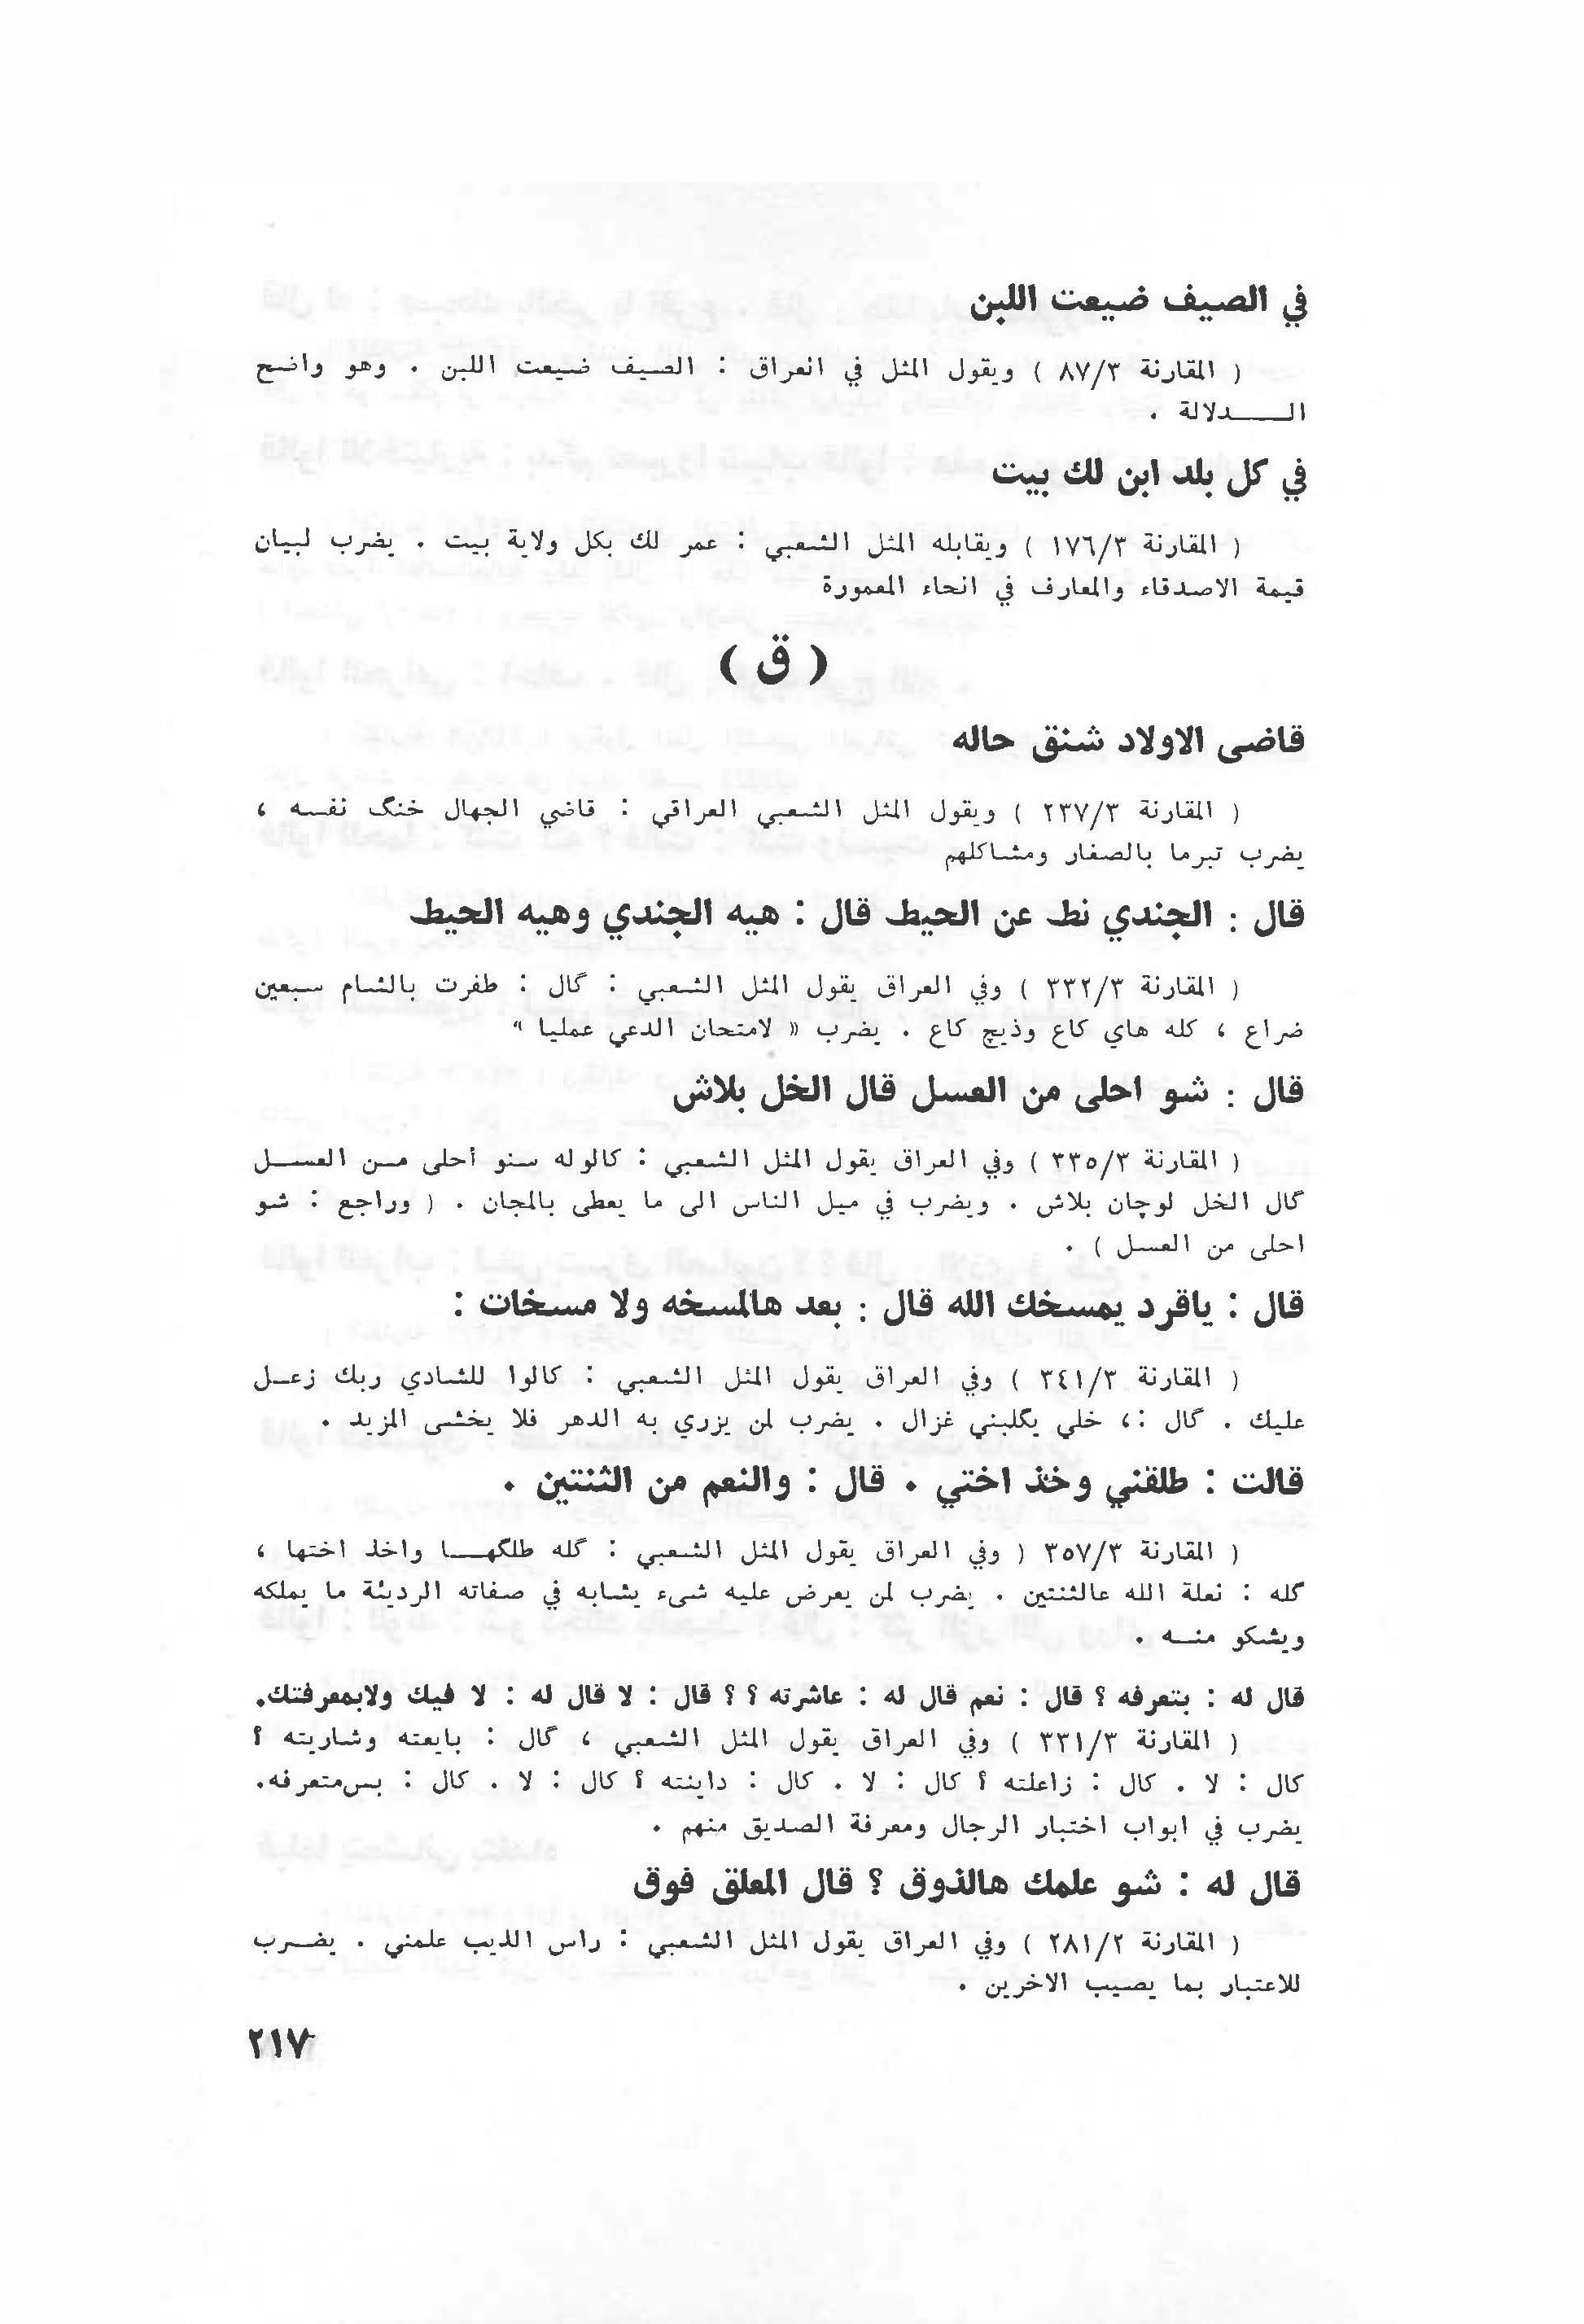 في الصيف ضيعت اللبن
( المقارنة ٨٧/٣ ) ويقول المثل في العراق : الصيف ضيعت اللبن . وهو واضح
الـدلالة .
في كل بلد ابن لك بيت
( المقارنة ١٧٦/٣ ) ويقابله المثل الشعبي : عمر لك بكل ولاية بيت . يضرب لبيان
قيمة الاصدقاء والمعارف في انحاء المعمورة
( ق )
قاضى الاولاد شنق حاله
( المقارنة ٢٣٧/٣ ) ويقول المثل الشعبي العراقي : قاضي الجهال خنگ نفسه ،
يضرب تبرما بالصغار ومشاكلهم
قال : الجندي نط عن الحيط قال : هيه الجندي وهيه الحيط
( المقارنة ٣٣٢/٣ ) وفي العراق يقول المثل الشعبي : گال : طفرت بالشام سبعين
ضراع ، كله هاي كاع وذيچ كاع . يضرب « لامتحان الدعي عمليا »
قال : شو احلى من العسل قال الخل بلاش
( المقارنة ٣٣٥/٣ ) وفي العراق يقول المثل الشعبي : كالوله سنو أحلى من العسل
گال الخل لوچان بلاش . ويضرب في ميل الناس الى ما يعطى بالمجان . ( وراجع : شو
احلى من العسل ) .
قال : ياقرد يمسخك الله قال : بعد هالمسخه ولا مسخات :
( المقارنة ٣٤١/٣ ) وفي العراق يقول المثل الشعبي : كالوا للشادي ربك زعل
عليك . گال :، خلي يگلبني غزال . يضرب لمن يزري به الدهر فلا يخشى المزيد .
قالت : طلقني وخذ اختي . قال : والنعم من الثنتين .
( المقارنة ٣٥٧/٣ ) وفي العراق يقول المثل الشعبي : گله طلگها واخذ اختها ،
گله : نعلة الله عالثنتين . يضرب لمن يعرض عليه شىء يشابه في صفاته الرديئة ما يملكه
ويشكو منه .
قال له : بتعرفه ؟ قال : نعم قال له : عاشرته ؟ ؟ قال : لا قال له : لا فيك ولابمعرفتك.
( المقارنة ٣٣١/٣ ) وفي العراق يقول المثل الشعبي ، گال : بايعته وشاريته ؟
كال : لا . كال : زاعلته ؟ كال : لا . كال : داينته ؟ كال : لا . كال : بس متعرفه.
يضرب في ابواب اختبار الرجال ومعرفة الصديق منهم .
قال له : شو علمك هالذوق ؟ قال المعلق فوق
( المقارنة ٢٨١/٢ ) وفي العراق يقول المثل الشعبي : راس الذيب علمني . يضرب
للاعتبار بما يصيب الاخرين .
٢١٧